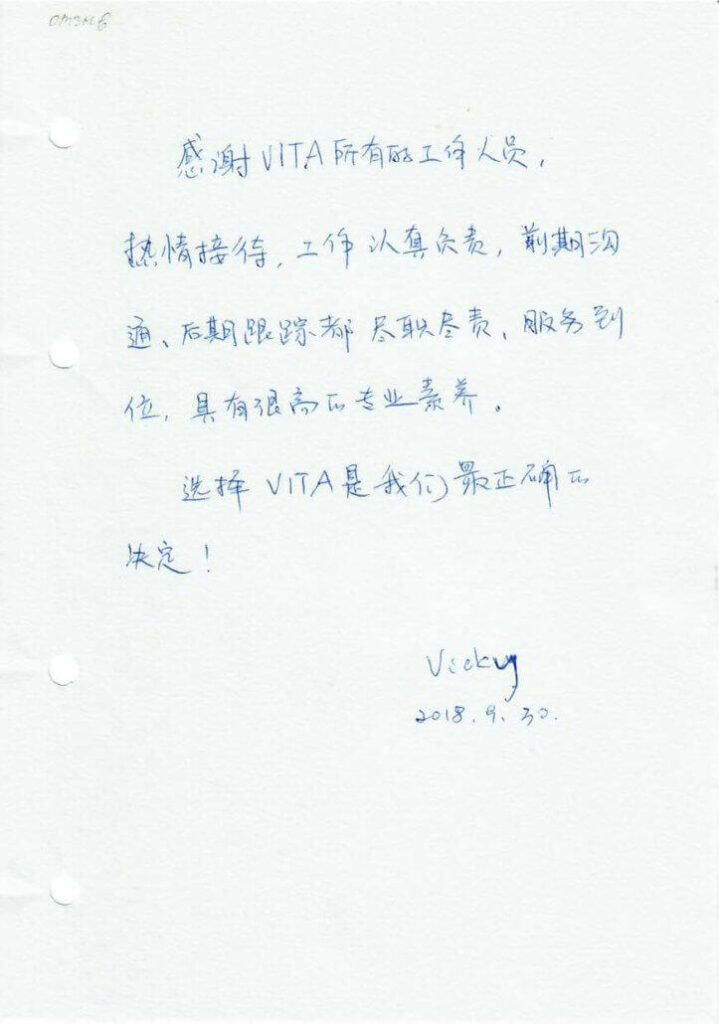 感谢VITA所有的工作人员,
热情接待, 工作认真负责, 前期沟
通、后期跟踪都尽职尽责、服务到
位, 具有很高的专业素养。
选择 VITA是我们最正确的
决定!
Vicky
2018.9.30.